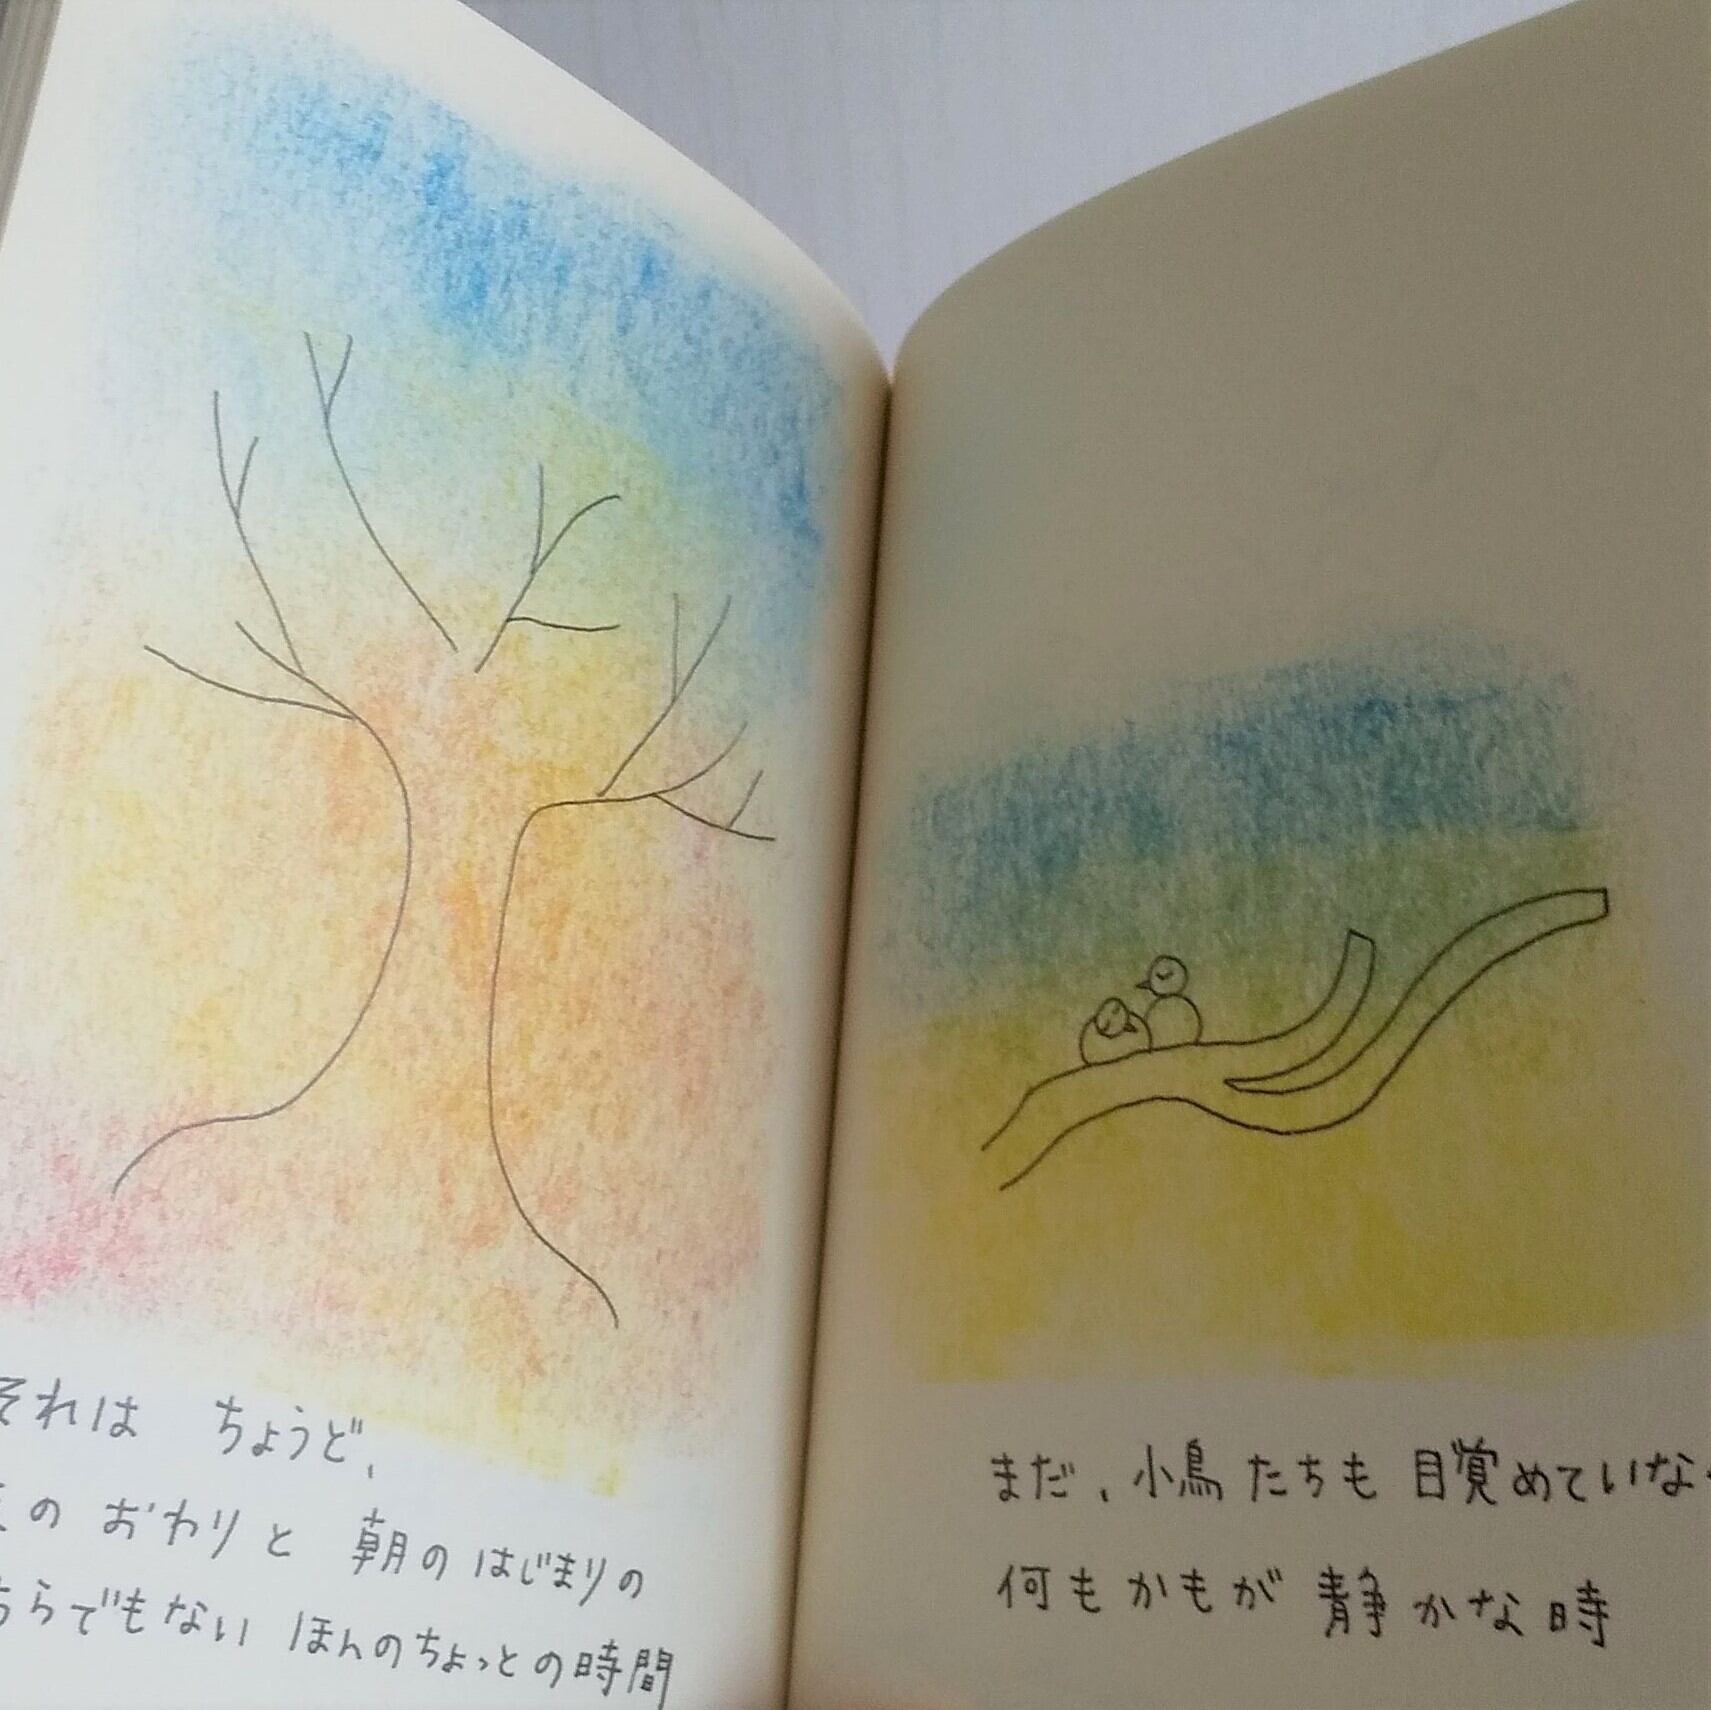 それは ちょうど、
の おわりと 朝の はじまりの
らでもない ほんのちょっとの時間
まだ、小鳥たちも 目覚めていな
何もかもが 静かな時